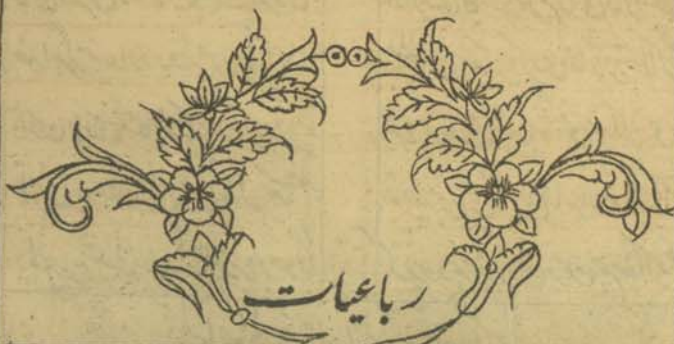 رباعیات